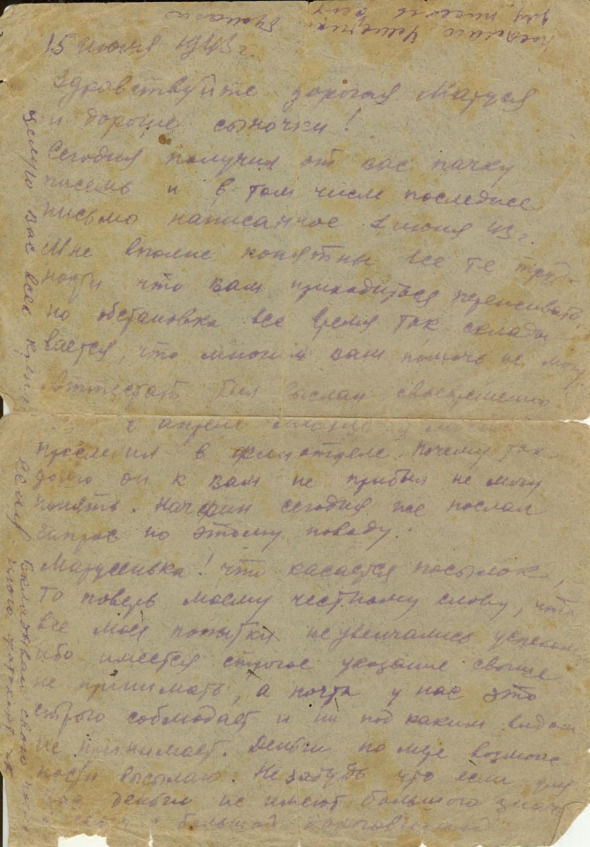 15 июня 1943 г.
Здравствуйте дорогая Маруся
и дорогие сыночки!
Сегодня получил от вас пачку
писем и в том числе последнее
письмо написанное 2 июня 43 г.
Мне вполне понятны все те труд-
ности что вам приходиться переживать,
но обстановка все время так склады-
вается, что многим вам помочь не могу
Аттестат был выслан своевременно
в апреле
в финотделе. Почему так
долго он к вам не прибыл не могу
понять. Начфин сегодня же послал
запрос по этому поводу.
Марусенька! Что касается посылок,
то поверь моему честному слову, что
все мои попытки не увенчались успехом
ибо имеется строгое указание свыше
не принимать, а почта у нас это
строго соблюдает и ни под каким видом
не принимает. Деньги по мере возмож-
ности высылаю. Не забудь что если для
деньги не имеют большого знач
с большой
целую вас всех
для писем
бумаги